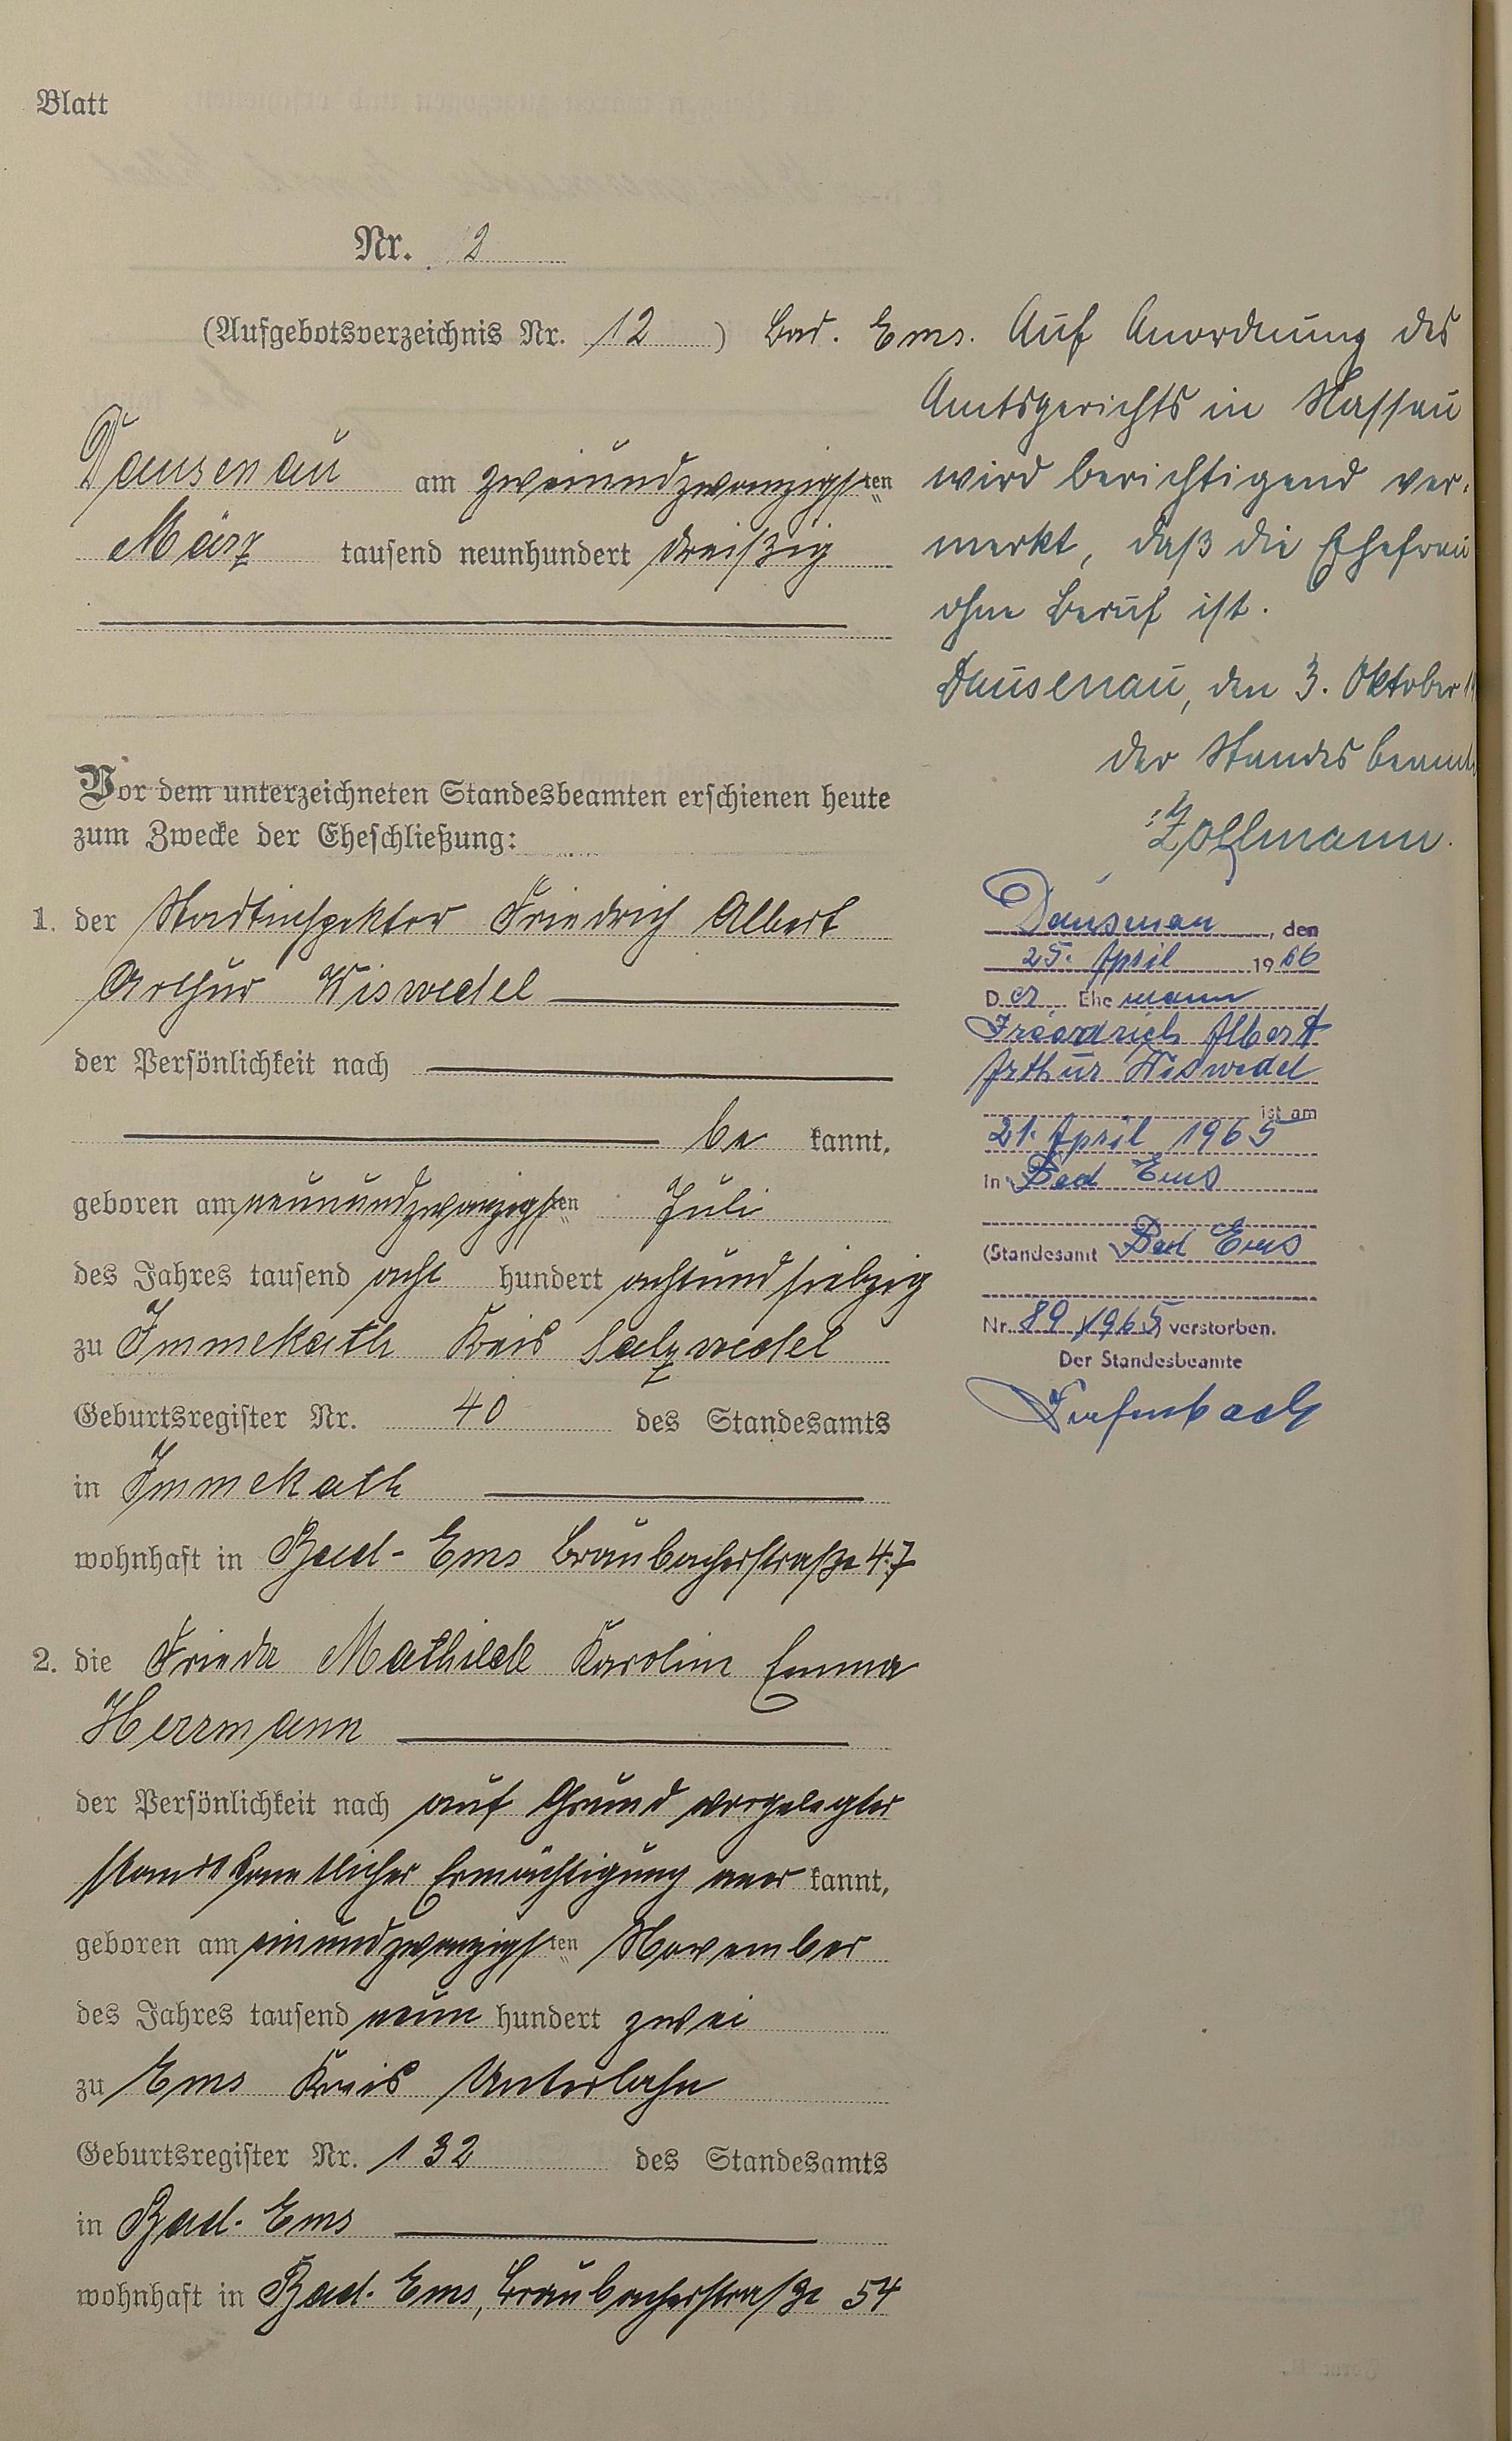 Blatt
Nr. 2
(Aufgebotsverzeichnis Nr. 12) Bad. Ems.
Dausenau am zweiundzwanzigsten
März tausend neunhundert dreißig
Vor dem unterzeichneten Standesbeamten erschienen heute
zum Zwecke der Eheschließung:
1. der Stadtinspektor Friedrich Albert
Arthur Wiswedel
der Persönlichkeit nach
be kannt,
geboren am neunundzwanzigsten Juli
des Jahres tausend acht hundert achtundsiebzig
zu Immekath Kreis Salzwedel
Geburtsregister Nr. 40 des Standesamts
in Immekath
wohnhaft in Bad-Ems Braubacherstraße 47
2. die Frieda Mathilde Karoline Emma
Herrmann
der Persönlichkeit nach auf Grund vorgelegter
standesamtlicher Ermächtigung aner kannt,
geboren am einundzwanzigsten November
des Jahres tausend neun hundert zwei
zu Ems Kreis Unterlahn
Geburtsregister Nr. 132 des Standesamts
in Bad-Ems
wohnhaft in Bad-Ems, Braubacherstraße 54
Auf Anordnung des
Amtsgerichts in Nassau
wird berichtigend ver-
merkt, daß die Ehefrau
ohne Beruf ist.
Dausenau, den 3. Oktober
der Standesbeamte
Zollmann.
Dausenau, den
25. April 1966
Der Ehemann
Friedrich Albert
Arthur Wiswedel
ist am
21. April 1965
in Bad Ems
(Standesamt Bad Ems
Nr. 89/1965) verstorben.
Der Standesbeamte